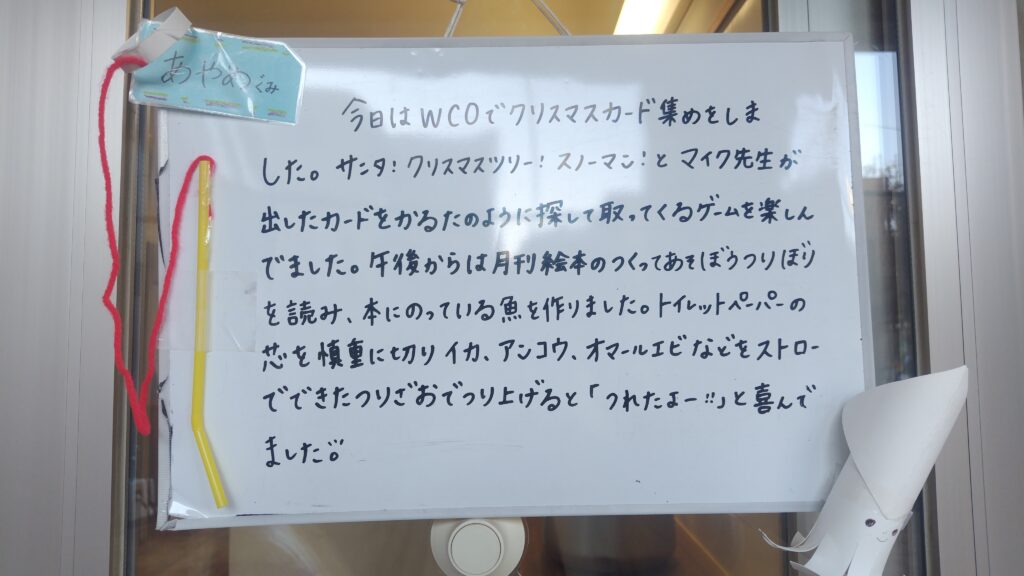 あやめぐみ
今日はWCOでクリスマスカード集めをしま
した。サンタ!クリスマスツリー!スノーマン!とマイク先生が
出したカードをかるたのように探して取ってくるゲームを楽しん
でました。午後からは月刊絵本のつくってあそぼうつりぼり
を読み、本にのっている魚を作りました。トイレットペーパーの
芯を慎重に切りイカ、アンコウ、オマールエビなどをストロー
でできたつりざおでつり上げると「つれたよー!!」と喜んで
ました。